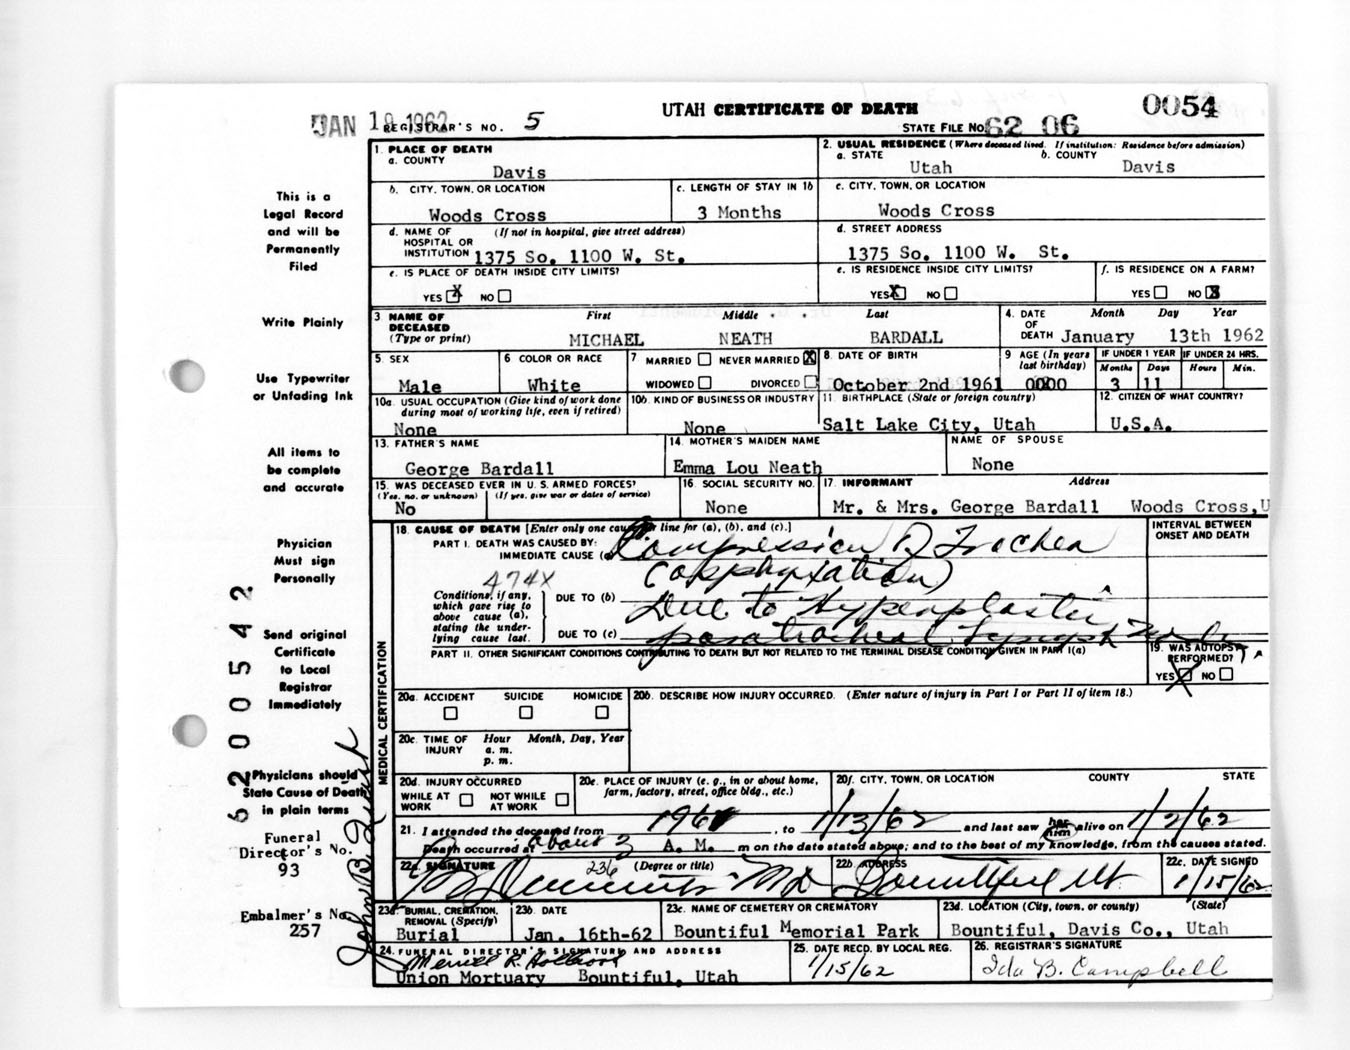 UTAH CERTIFICATE OF DEATH
0054
JAN 19 1962
REGISTRAR'S NO. 5
STATE FILE NO. 62 06
1. PLACE OF DEATH
a. COUNTY
Davis
2. USUAL RESIDENCE (Where deceased lived. If institution: Residence before admission)
a. STATE
Utah
b. COUNTY
Davis
b. CITY, TOWN, OR LOCATION
Woods Cross
c. LENGTH OF STAY IN 1b
3 Months
c. CITY, TOWN, OR LOCATION
Woods Cross
d. NAME OF HOSPITAL OR INSTITUTION (If not in hospital, give street address)
1375 So. 1100 W. St.
d. STREET ADDRESS
1375 So. 1100 W. St.
e. IS PLACE OF DEATH INSIDE CITY LIMITS?
YES X NO
e. IS RESIDENCE INSIDE CITY LIMITS?
YES X NO
f. IS RESIDENCE ON A FARM?
YES NO X
3 NAME OF DECEASED (Type or print)
First Middle Last
MICHAEL NEATH BARDALL
4. DATE OF DEATH
Month Day Year
January 13th 1962
5. SEX
Male
6 COLOR OR RACE
White
7 MARRIED NEVER MARRIED X
WIDOWED DIVORCED
8. DATE OF BIRTH
October 2nd 1961
9 AGE (In years last birthday)
IF UNDER 1 YEAR
Months Days
3 11
IF UNDER 24 HRS.
Hours Min.
10a. USUAL OCCUPATION (Give kind of work done during most of working life, even if retired)
None
10b. KIND OF BUSINESS OR INDUSTRY
None
11. BIRTHPLACE (State or foreign country)
Salt Lake City, Utah
12. CITIZEN OF WHAT COUNTRY?
U.S.A.
13. FATHER'S NAME
George Bardall
14. MOTHER'S MAIDEN NAME
Emma Lou Neath
NAME OF SPOUSE
None
15. WAS DECEASED EVER IN U. S. ARMED FORCES?
(Yes, no, or unknown) (If yes, give war or dates of service)
No
16. SOCIAL SECURITY NO.
None
17. INFORMANT Address
Mr. & Mrs. George Bardall Woods Cross, U
18. CAUSE OF DEATH [Enter only one cause per line for (a), (b), and (c).]
INTERVAL BETWEEN ONSET AND DEATH
PART I. DEATH WAS CAUSED BY:
IMMEDIATE CAUSE (a) Compression of Trachea
(asphyxiation)
474X
Conditions, if any, which gave rise to above cause (a), stating the underlying cause last.
DUE TO (b) Due to Hyperplastic
DUE TO (c) paratracheal Lymph nodes
PART II. OTHER SIGNIFICANT CONDITIONS CONTRIBUTING TO DEATH BUT NOT RELATED TO THE TERMINAL DISEASE CONDITION GIVEN IN PART I(a)
19. WAS AUTOPSY PERFORMED?
YES X NO
MEDICAL CERTIFICATION
20a. ACCIDENT SUICIDE HOMICIDE
20b. DESCRIBE HOW INJURY OCCURRED. (Enter nature of injury in Part I or Part II of item 18.)
20c. TIME OF INJURY
Hour Month, Day, Year
a. m.
p. m.
20d. INJURY OCCURRED
WHILE AT WORK NOT WHILE AT WORK
20e. PLACE OF INJURY (e. g., in or about home, farm, factory, street, office bldg., etc.)
20f. CITY, TOWN, OR LOCATION COUNTY STATE
21. I attended the deceased from 1961, to 1/13/62 and last saw her him alive on 1/2/62
Death occurred at about 3 A. M. m on the date stated above; and to the best of my knowledge, from the causes stated.
22a. SIGNATURE 236 (Degree or title)
MD
22b. ADDRESS
Bountiful Ut
22c. DATE SIGNED
1/15/62
23a. BURIAL, CREMATION, REMOVAL (Specify)
Burial
23b. DATE
Jan. 16th-62
23c. NAME OF CEMETERY OR CREMATORY
Bountiful Memorial Park
23d. LOCATION (City, town, or county) (State)
Bountiful, Davis Co., Utah
24. FUNERAL DIRECTOR'S SIGNATURE AND ADDRESS
Merrill R. Holbrook
Union Mortuary Bountiful, Utah
25. DATE RECD. BY LOCAL REG.
1/15/62
26. REGISTRAR'S SIGNATURE
Ida B. Campbell
This is a
Legal Record
and will be
Permanently
Filed
Write Plainly
Use Typewriter
or Unfading Ink
All items to
be complete
and accurate
Physician
Must sign
Personally
Send original
Certificate
to Local
Registrar
Immediately
Physicians should
State Cause of Death
in plain terms
Funeral
Director's No.
93
Embalmer's No.
257
6200542
John B.